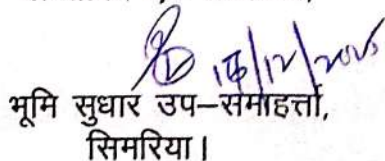 16/12/2025
भूमि सुधार उप–समाहर्त्ता,
सिमरिया।